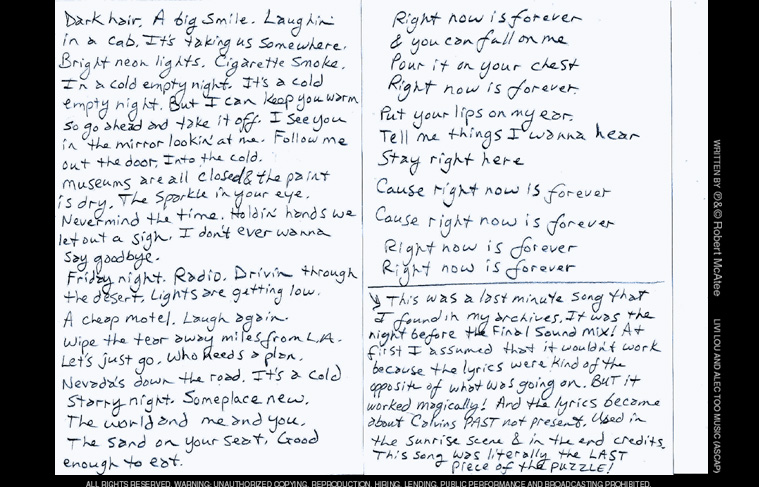 Dark hair. A big smile. Laughin'
in a cab. It's taking us somewhere.
Bright neon lights. Cigarette Smoke.
In a cold empty night. It's a cold
empty night. But I can keep you warm
so go ahead and take it off. I see you
in the mirror lookin' at me. Follow me
out the door, Into the cold.
Museums are all closed & the paint
is dry. The sparkle in your eye.
Nevermind the time. Holdin' hands we
let out a sigh. I don't ever wanna
Say goodbye.
Friday night. Radio. Drivin' through
the desert. Lights are getting low.
A cheap motel. Laugh again.
Wipe the tear away miles from L.A.
Let's just go. Who needs a plan.
Nevada's down the road. It's a cold
Starry night. Someplace new.
The world and me and you.
The sand on your seat. Good
enough to eat.
Right now is forever
& you can fall on me
Pour it on your chest
Right now is forever.
Put your lips on my ear.
Tell me things I wanna hear
Stay right here
Cause right now is forever
Cause right now is forever
Right now is forever
Right now is forever
This was a last minute song that
I found in my archives. It was the
night before the Final Sound mix! At
first I assumed that it wouldn't work
because the lyrics were kind of the
opposite of what was going on. BUT it
worked magically! And the lyrics became
about Calvins PAST not present. Used in
the sunrise scene & in the end credits.
This song was literally the LAST
piece of the PUZZLE!
WRITTEN BY ℗&© Robert McAtee
LIVI LOU AND ALEC TOO MUSIC (ASCAP)
ALL RIGHTS RESERVED. WARNING: UNAUTHORIZED COPYING, REPRODUCTION, HIRING, LENDING, PUBLIC PERFORMANCE AND BROADCASTING PROHIBITED.